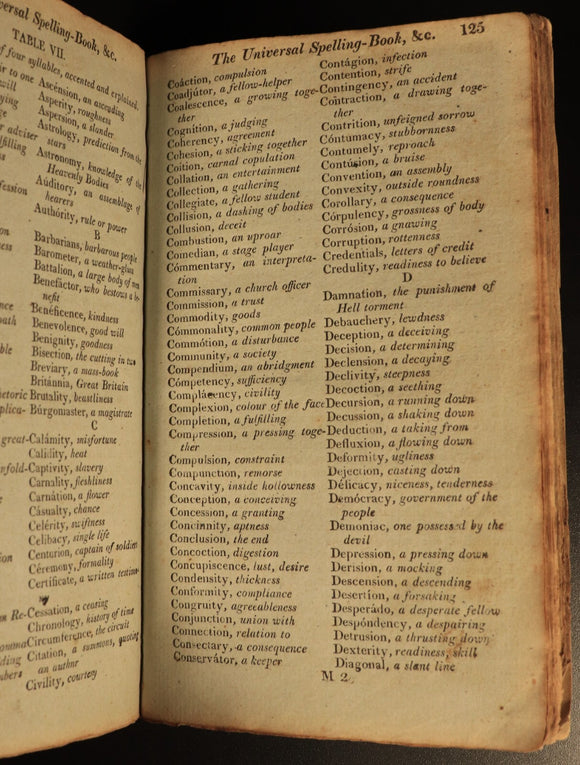 versal Spelling-Book, &c.
TABLE VII.
of four syllables, accented and explained.
ir to one
will
lying
ge
r adviser
lfilling
s
fession
on
ness
nce
oath
ble
hetoric
plica-
great-
nfold-
tion
m Re-
omma
ding
mbers
Ascénsion, an ascending
Asperity, roughness
Aspersion, a slander
Astrology, prediction from the
stars
Astronomy, knowledge of the
Heavenly Bodies
Aúditory, an assemblage of
hearers
Authórity, rule or power
B
Barbarians, barbarous people
Barometer, a weather-glass
Battalion, a large body of men
Benefáctor, who bestows a be-
nefit
Benéficence, kindness
Benevolence, good will
Benignity, goodness
Bisection, the cutting in two
Breviary, a mass-book
Británnia, Great Britain
Brutality, beastliness
Búrgomaster, a magistrate
C
Calámity, misfortune
Calidity, heat
Captivity, slavery
Carnality, fleshliness
Carnátion, a flower
Cásualty, chance
Celérity, swiftness
Celibacy, single life
Centúrion, captain of soldiers
Céremony, formality
Certíficate, a written testimo-
ny
Cessation, a ceasing
Chronology, history of time
Circúmference, the circuit
Citation, a summons, quoting
an author
Civility, courtesy
The Universal Spelling-Book, &c. 125
Coáction, compulsion
Coadjútor, a fellow-helper
Coalescence, a growing toge-
ther
Cognition, a judging
Coherency, agreement
Cohesion, a sticking together
Coition, carnal copulation
Collation, an entertainment
Collection, a gathering
Collegiate, a fellow student
Collision, a dashing of bodies
Collusion, deceit
Combustion, an uproar
Comedian, a stage player
Cómmentary, an interpreta-
tion
Commissary, a church officer
Commission, a trust
Commodity, goods
Cómmonality, common people
Commótion, a disturbance
Community, a society
Compendium, an abridgment
Cómpetency, sufficiency
Complácency, civility
Complexion, colour of the face
Completion, a fulfilling
Compression, a pressing toge-
ther
Compulsion, constraint
Compunction, remorse
Concavity, inside hollowness
Conception, a conceiving
Concession, a granting
Concinnity, aptness
Conclusion, the end
Concoction, digestion
Concupiscence, lust, desire
Condensity, thickness
Conformity, compliance
Congruity, agreeableness
Conjunction, union with
Connection, relation to
Consectary, a consequence
Conservátor, a keeper
Contágion, infection
Contention, strife
Contingency, an accident
Contraction, a drawing toge-
ther
Contrition, unfeigned sorrow
Cóntumacy, stubbornness
Contumely, reproach
Contúsion, a bruise
Convention, an assembly
Convexity, outside roundness
Corollary, a consequence
Córpulency, grossness of body
Corrósion, a gnawing
Corruption, rottenness
Credentials, letters of credit
Credulity, readiness to believe
D
Damnation, the punishment of
Hell torment
Debauchery, lewdness
Deception, a deceiving
Decision, a determining
Declension, a decaying
Declivity, steepness
Decoction, a seething
Decursion, a running down
Decussion, a shaking down
Deduction, a taking from
Defluxion, a flowing down
Deformity, ugliness
Dejection, casting down
Délicacy, niceness, tenderness
Demócracy, government of the
people
Demoniac, one possessed by the
devil
Depression, a pressing down
Derision, a mocking
Descension, a descending
Desertion, a forsaking
Desperádo, a desperate fellow
Despóndency, a despairing
Detrusion, a thrusting down
Dexterity, readiness, skill
Diagonal, a slant line
M 2